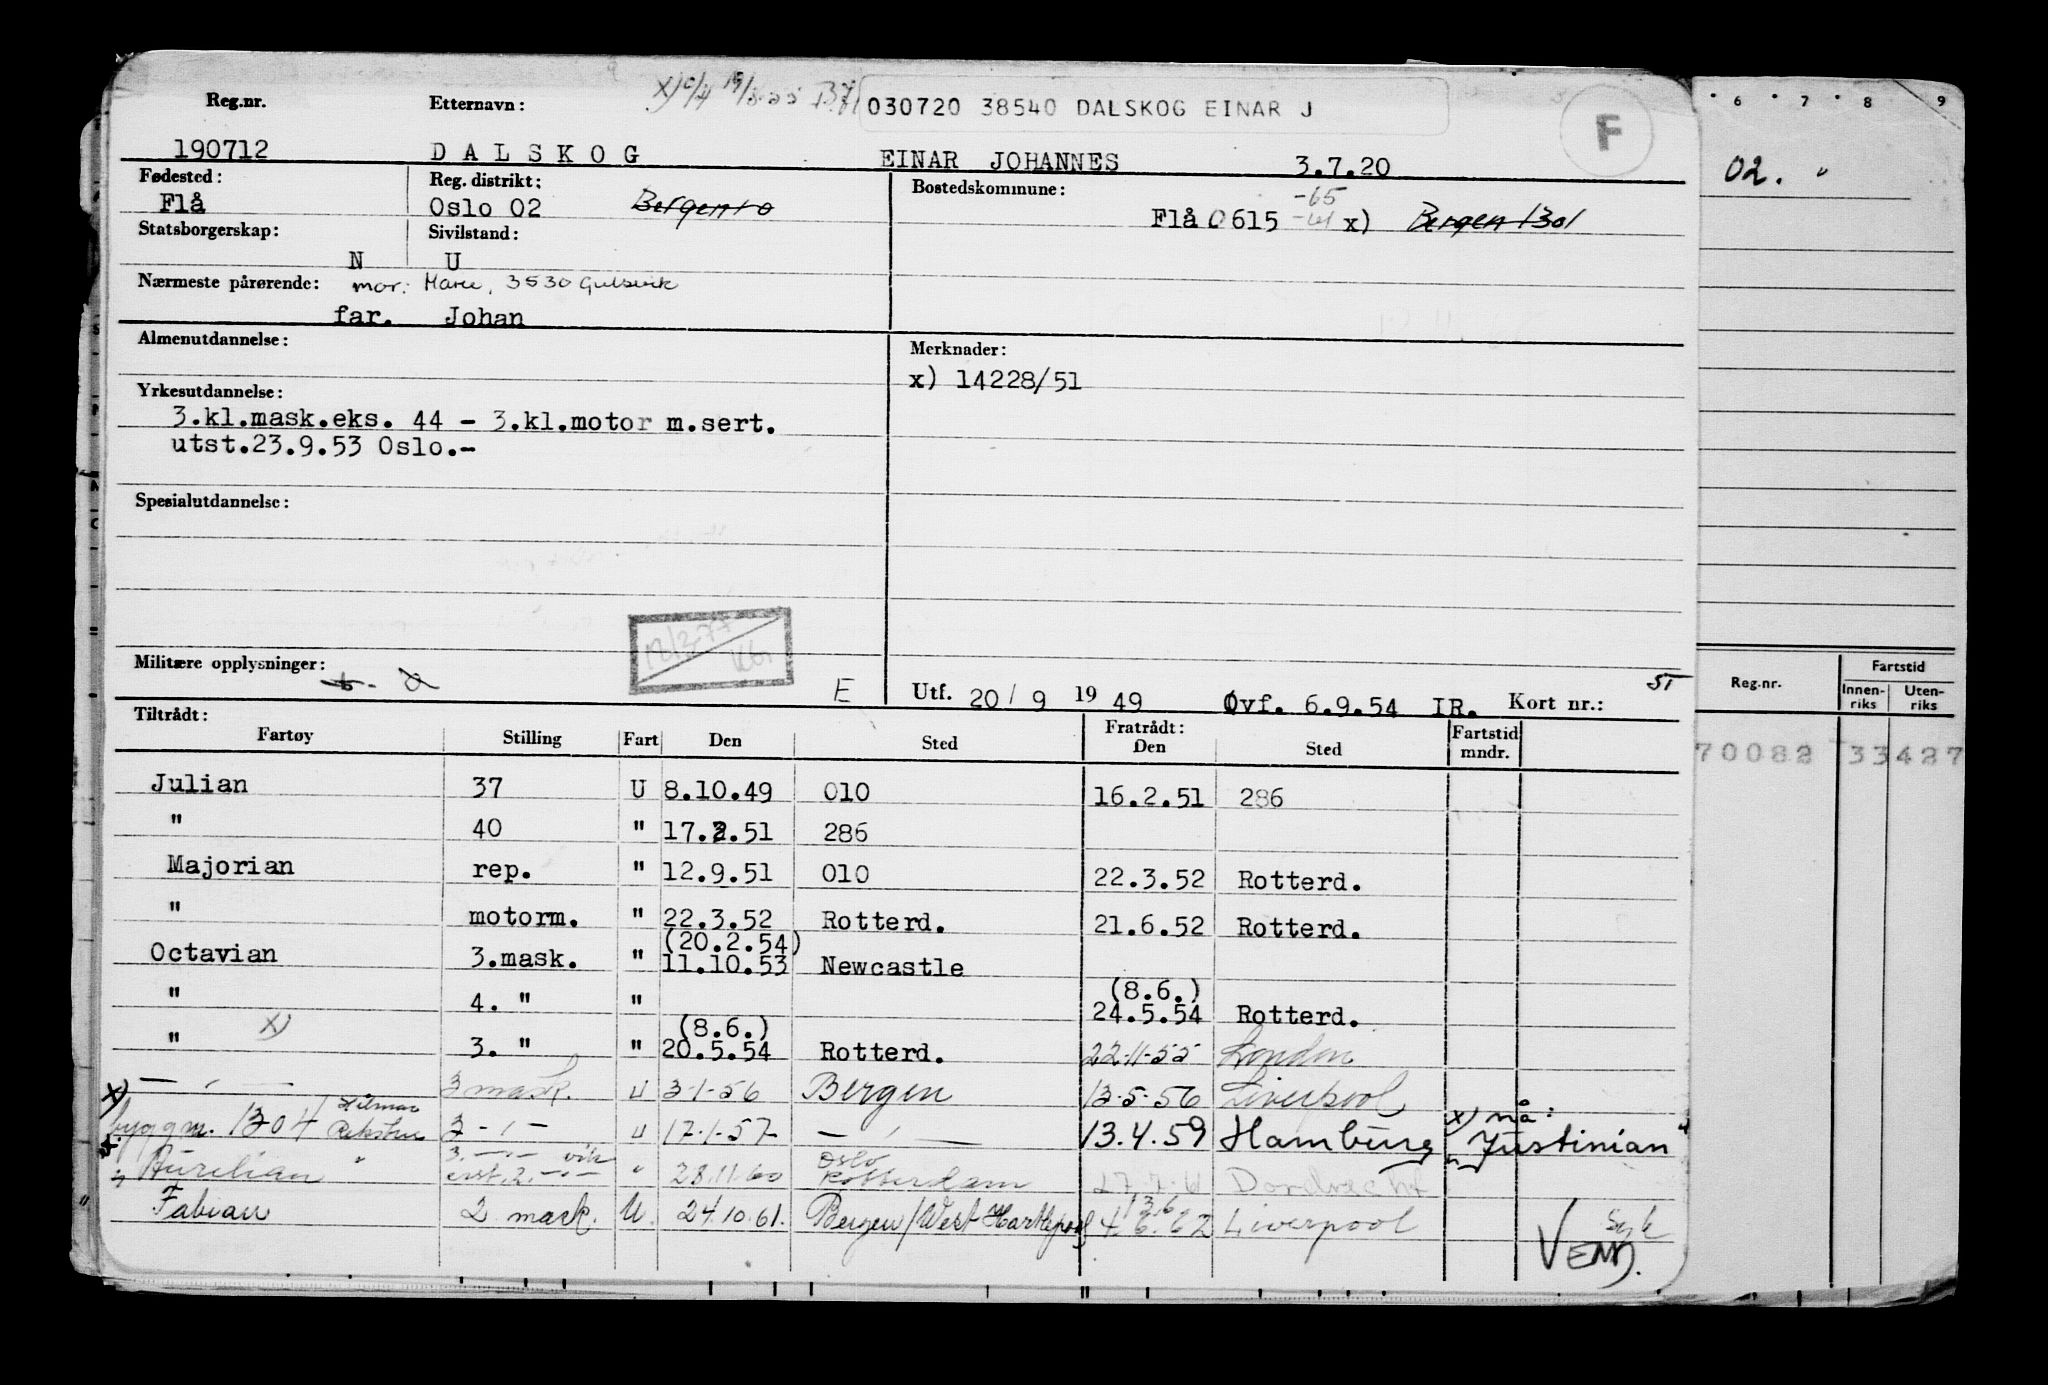 030720 38540 DALSKOG EINAR J
F
Reg.nr. Etternavn:
190712 DALSKOG EINAR JOHANNES 3.7.20
Fødested: Reg. distrikt: Bostedskommune:
-65
Flå Oslo 02 Bergen 10 Flå 0615 -61 x) Bergen 1301
Statsborgerskap: Sivilstand:
N U
Nærmeste pårørende: mor: Marie, 3530 Gulsvik
far. Johan
Almenutdannelse: Merknader:
x) 14228/51
Yrkesutdannelse:
3.kl.mask.eks. 44 - 3.kl.motor m.sert.
utst.23.9.53 Oslo.-
Spesialutdannelse:
12/2-77
Militære opplysninger:
E Utf. 20/9 1949 Øvf. 6.9.54 IR. Kort nr.: 51
Tiltrådt: Fratrådt: Fartstid
Fartøy Stilling Fart Den Sted Den Sted mndr.
Julian 37 U 8.10.49 010 16.2.51 286
" 40 " 17.2.51 286
Majorian rep. " 12.9.51 010 22.3.52 Rotterd.
" motorm. " 22.3.52 Rotterd. 21.6.52 Rotterd.
(20.2.54)
Octavian 3.mask. " 11.10.53 Newcastle
(8.6.)
" 4. " " 24.5.54 Rotterd.
x) (8.6.)
" 3. " " 20.5.54 Rotterd. 22.11.55 London
— " — 3 mask. u 3-1-56 Bergen 13-5-56 Liverpool
x) byggm. 1304 Hilmar Reksten 3 - " - u 17.1.57 — " — 13.4.59 Hamburg x) nå: "Justinian"
Aurelian " 3. — " — vik " 28.11.60 Oslo
enst. 2. — " — Rotterdam 27.7.61 Dordrecht
13.6
Fabian 2 mask. U. 24.10.61. Bergen/West Hartlepool 4.6.62 Liverpool
VEND.
6 7 8 9
02. "
Reg.nr. Fartstid
Innenriks Utenriks
70082 33427